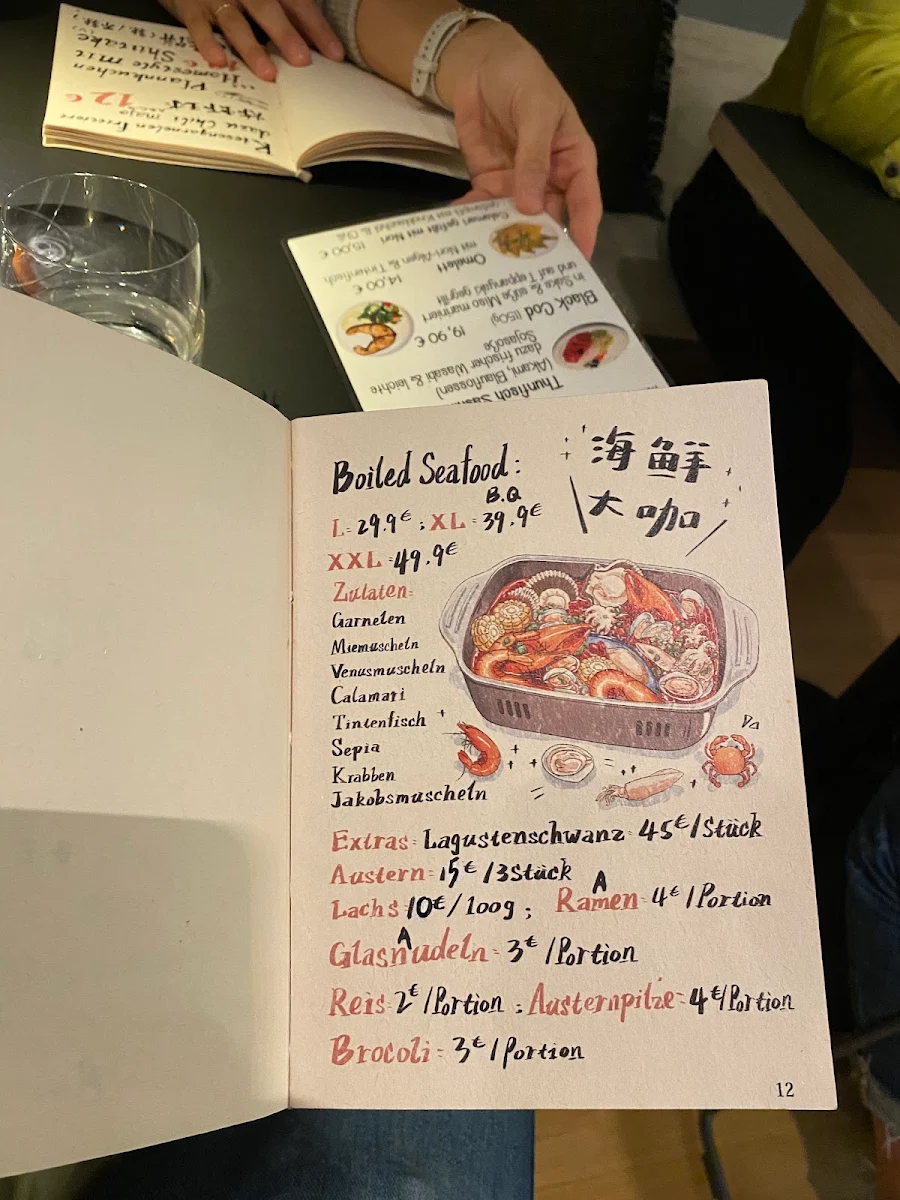 Riesengarnelen frittiert
dazu Chili mayo
12 €
Pfannkuchen
Homestyle mit
Shiitake
Calamari gefüllt mit Nori
15,00 €
Omelett
mit Nori-Algen & Tintenfisch
14,00 €
Black Cod (150g)
in Sake & süße Miso mariniert
und auf Teppanyaki gegrillt
19,90 €
(Akami, Blauflossen)
dazu frischer Wasabi & leichte
Sojasoße
Boiled Seafood:
海鲜
大咖
B.Q
L=29.9€ ; XL=39.9€
XXL=49.9€
Zutaten=
Garnelen
Miemuscheln
Venusmuscheln
Calamari
Tintenfisch
Sepia
Krabben
Jakobsmuscheln
Extras: Lagustenschwanz 45€/Stück
Austern=15€/3Stück
A
Lachs 10€/100g ; Ramen 4€/Portion
A
Glasnudeln=3€/Portion
Reis 2€/Portion ; Austernpilze=4€/Portion
Brocoli= 3€/Portion
12